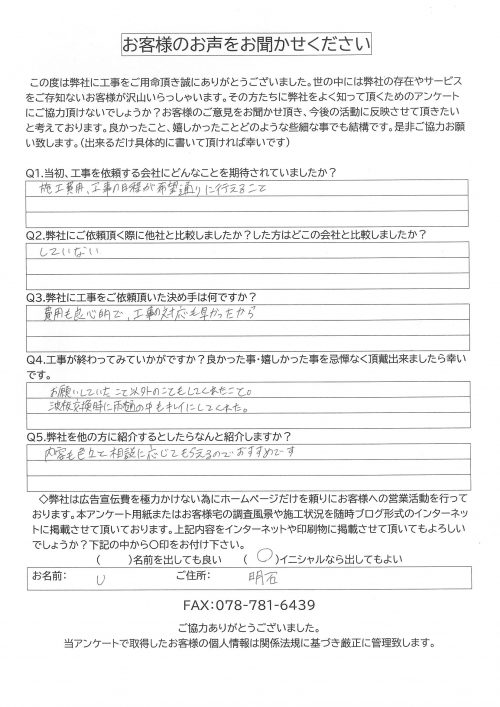 お客様のお声をお聞かせください
この度は弊社に工事をご用命頂き誠にありがとうございました。世の中には弊社の存在やサービス
をご存知ないお客様が沢山いらっしゃいます。その方たちに弊社をよく知って頂くためのアンケート
にご協力頂けないでしょうか？お客様のご意見をお聞かせ頂き、今後の活動に反映させて頂きたい
と考えております。良かったこと、嬉しかったことどのような些細な事でも結構です。是非ご協力お願
い致します。（出来るだけ具体的に書いて頂ければ幸いです）
Q1.当初、工事を依頼する会社にどんなことを期待されていましたか？
施工費用、工事の日程が希望通りに行えること
Q2.弊社にご依頼頂く際に他社と比較しましたか？した方はどこの会社と比較しましたか？
していない
Q3.弊社に工事をご依頼頂いた決め手は何ですか？
費用も良心的で、工事の対応も早かったから
Q4.工事が終わってみていかがですか？良かった事・嬉しかった事を忌憚なく頂戴出来ましたら幸い
です。
お願いしていたこと以外のこともしてくれたこと。
波板交換時に雨樋の中もキレイにしてくれた。
Q5.弊社を他の方に紹介するとしたらなんと紹介しますか？
内容も色々と相談に応じてもらえるのでおすすめです
◇弊社は広告宣伝費を極力かけない為にホームページだけを頼りにお客様への営業活動を行って
おります。本アンケート用紙またはお客様宅の調査風景や施工状況を随時ブログ形式のインターネッ
トに掲載させて頂いております。上記内容をインターネットや印刷物に掲載させて頂いてもよろしい
でしょうか？下記の中から〇印をお付け下さい。
（　　）名前を出しても良い　（ 〇 ）イニシャルなら出してもよい
お名前： U ご住所： 明石
FAX：078-781-6439
ご協力ありがとうございました。
当アンケートで取得したお客様の個人情報は関係法規に基づき厳正に管理致します。